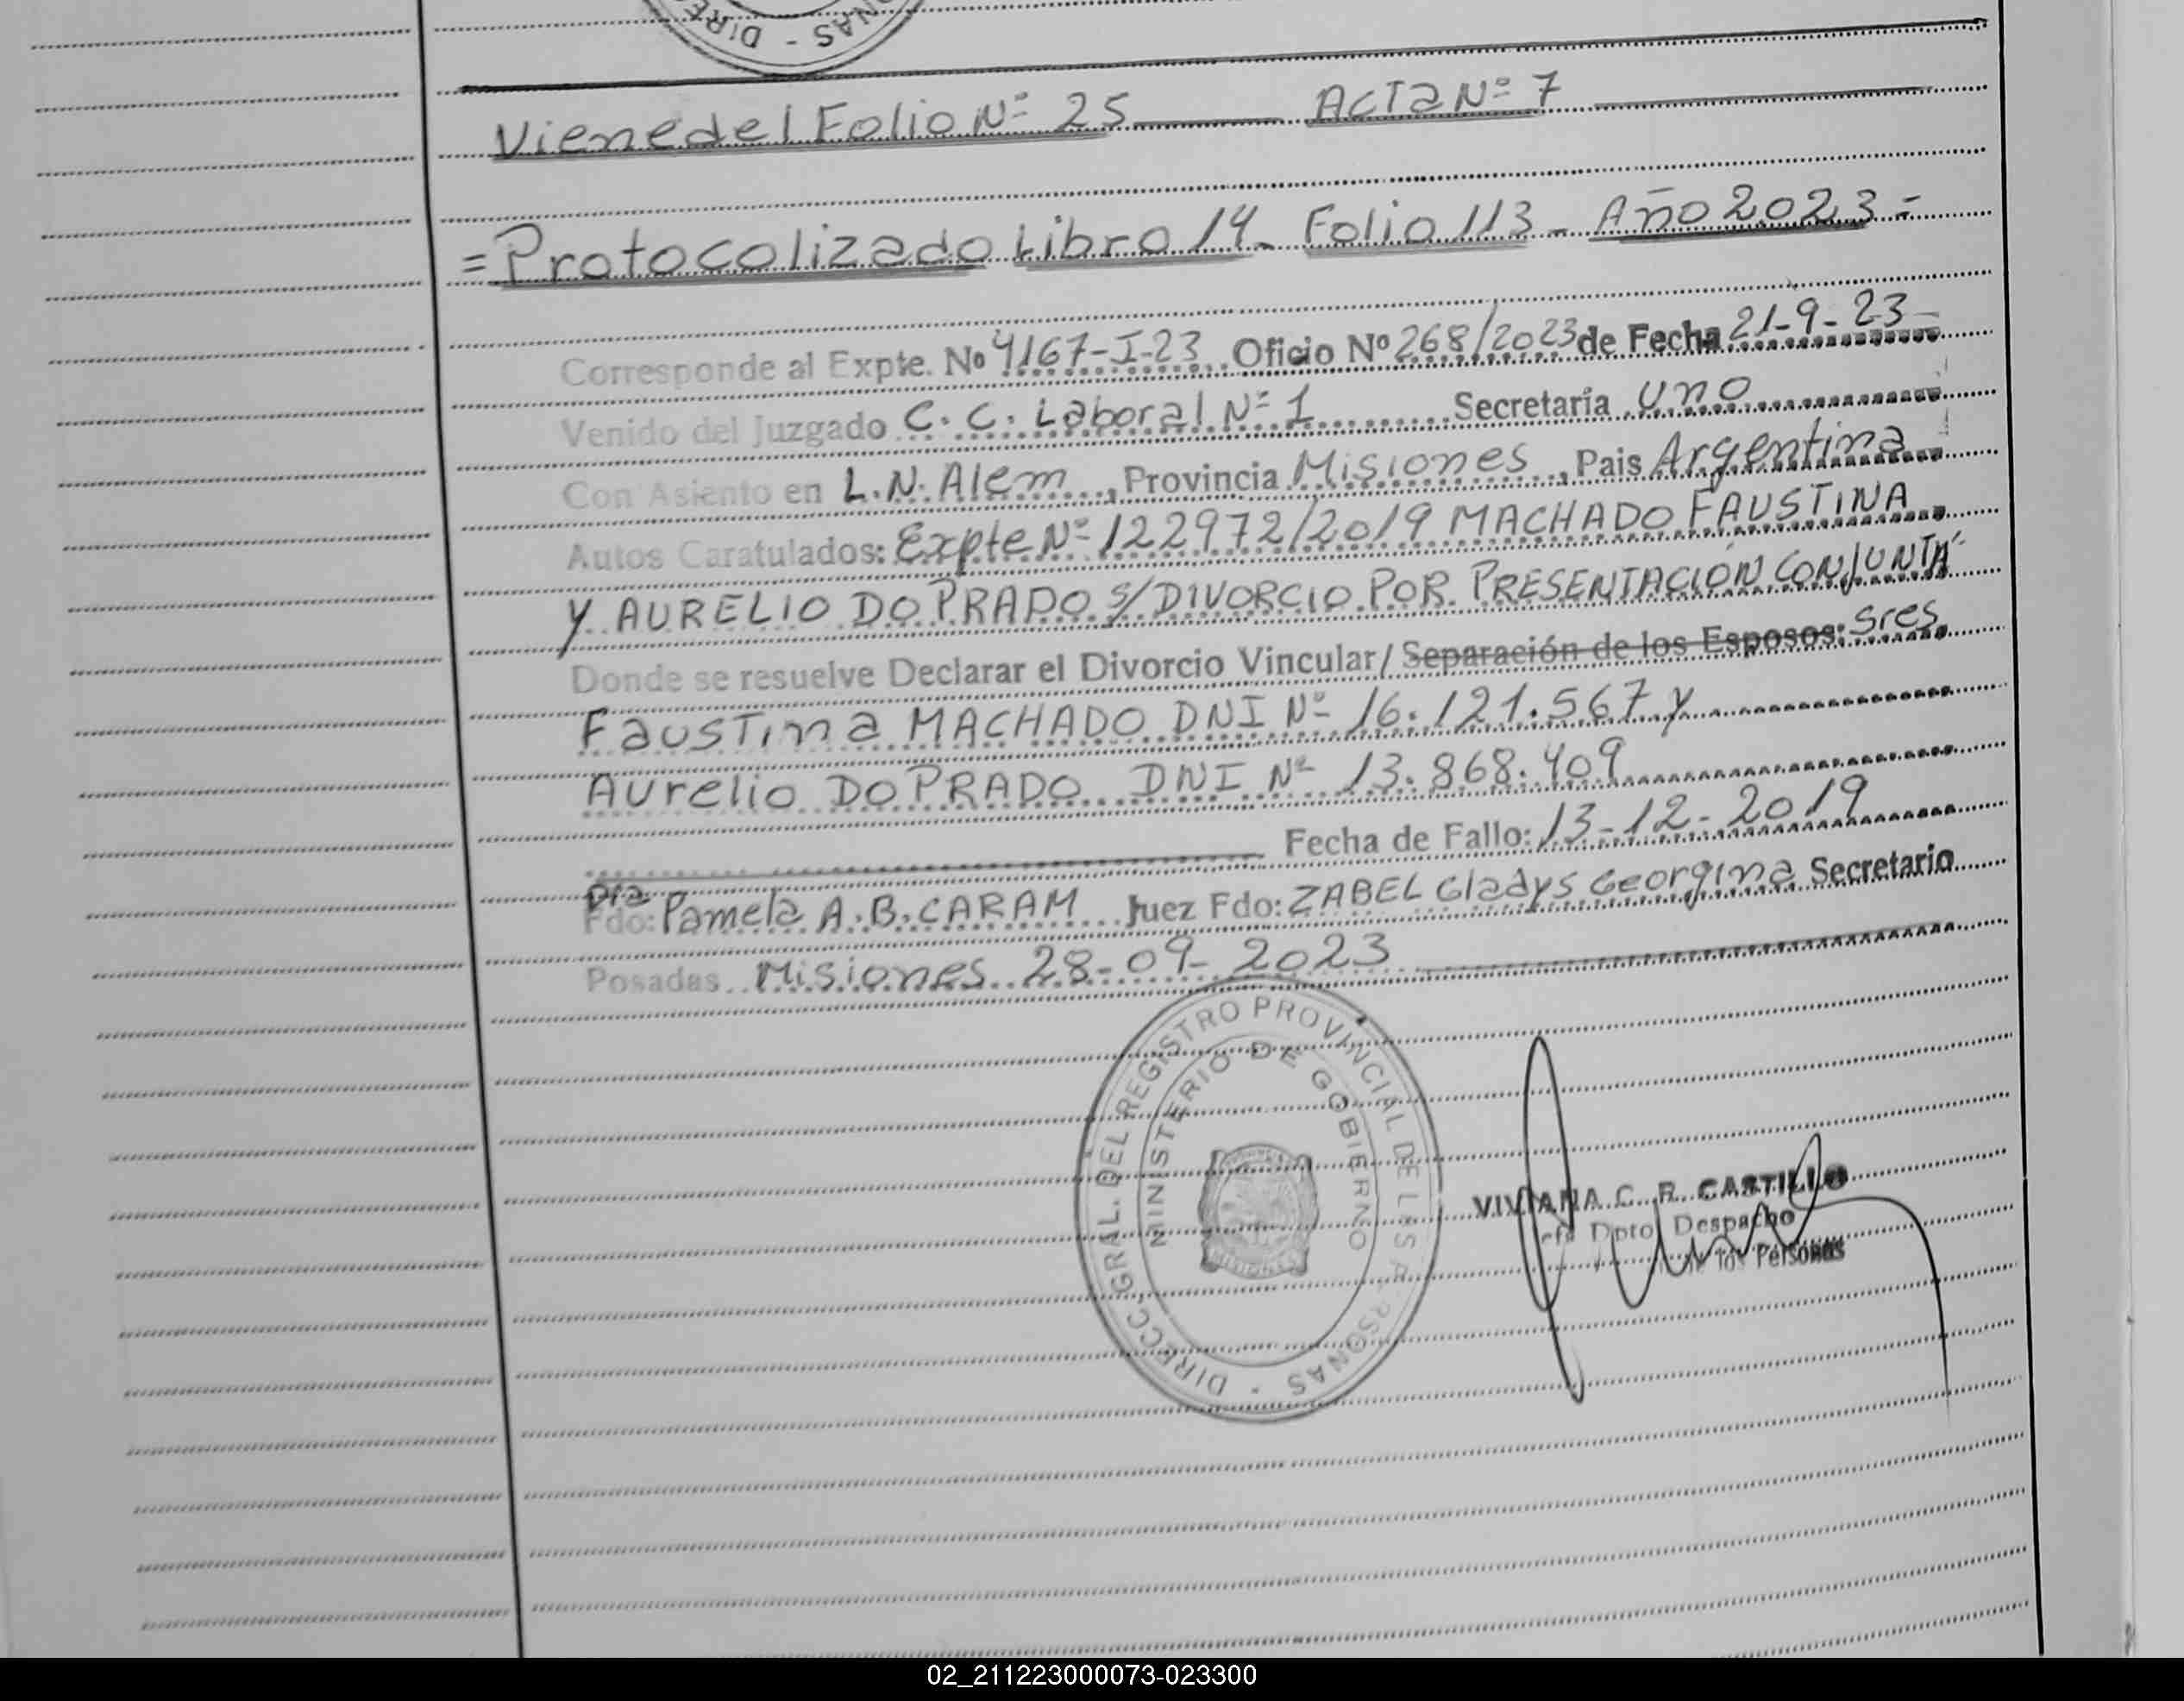 DIREC ONAS - DIREC
Viene del Folio Nº 25 ACTA Nº 7
= Protocolizado Libro 14 - Folio 113 - Año 2023 =
Corresponde al Expte. Nº 4167-I-23 Oficio Nº 268/2023 de Fecha 21-9-23
Venido del Juzgado C. C. Laboral Nº 1 Secretaría uno
Con Asiento en L.N. Alem, Provincia Misiones, Pais Argentina
Autos Caratulados: Expte Nº 122972/2019 MACHADO FAUSTINA
Y AURELIO DO PRADO S/ DIVORCIO POR PRESENTACIÓN CONJUNTA
Donde se resuelve Declarar el Divorcio Vincular/ Separación de los Esposos: Sres
Faustina MACHADO DNI Nº 16.121.567 y
Aurelio DO PRADO DNI Nº 13.868.409
Fecha de Fallo: 13-12-2019
Dra
Fdo: Pamela A.B. CARAM Juez Fdo: ZABEL Gladys Georgina Secretario
Posadas Misiones 28-09-2023
DIRECC GRAL. DEL REGISTRO PROVINCIAL DE LAS PERSONAS
MINISTERIO DE GOBIERNO
MISIONES
VIVIANA C. R. CASTILLO
Dpto Despacho
Personas
02_211223000073-023300